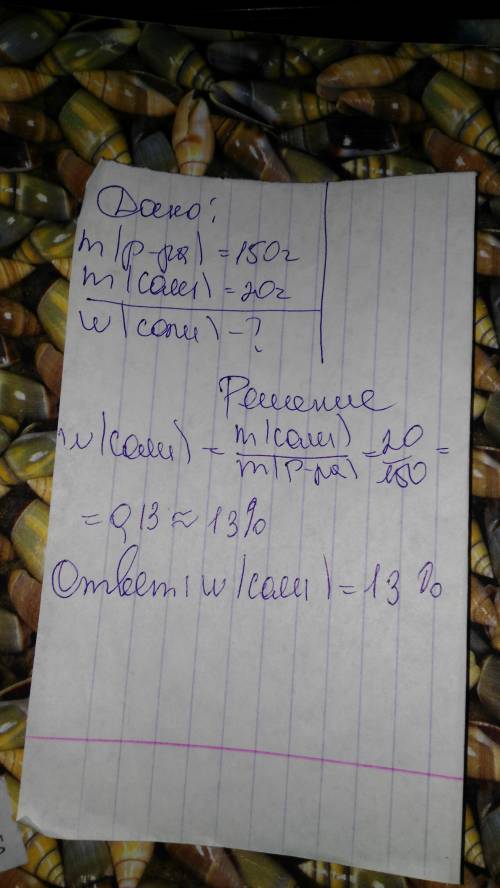 Дано:
m(р-ра) = 150г
m(соли) = 20г
w(соли) - ?
Решение
w(соли) = m(соли) / m(р-ра) = 20 / 150 =
= 0,13 ≈ 13%
Ответ: w(соли) = 13%